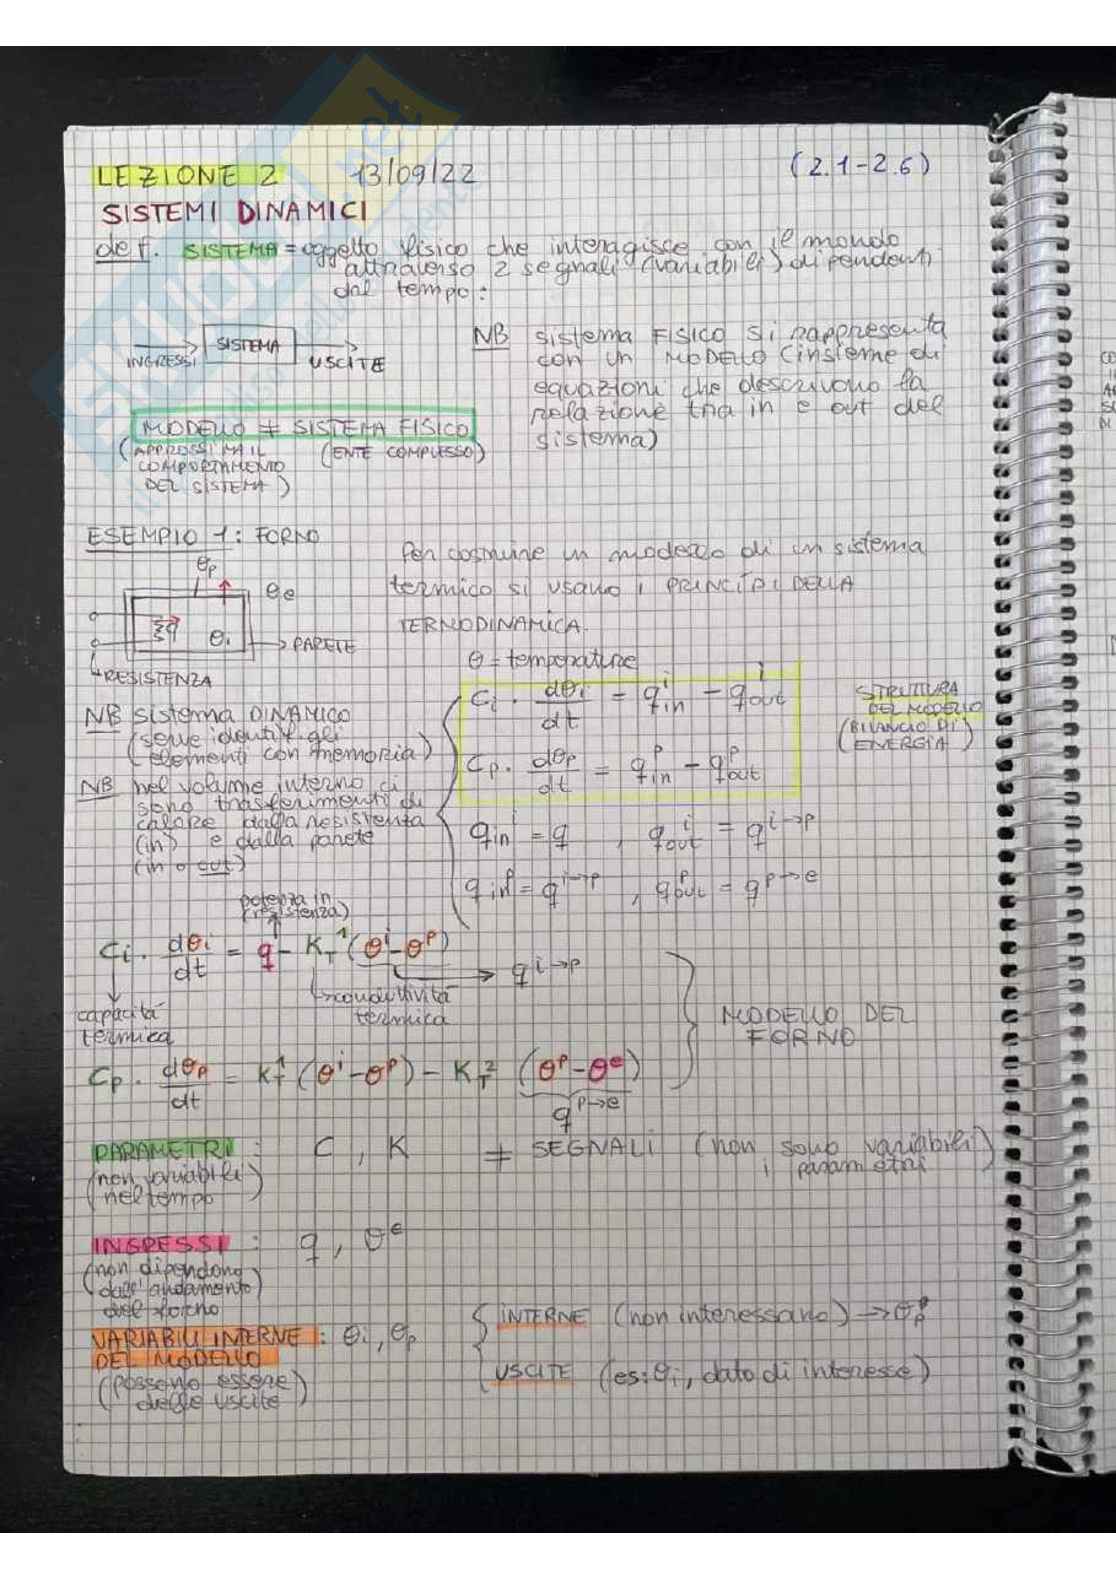 LEZIONE 2 13/09/22 (2.1-2.6)
SISTEMI DINAMICI
def. SISTEMA = oggetto fisico che interagisce con il mondo
attraverso 2 segnali (variabili) dipendenti
dal tempo:
INGRESSI SISTEMA USCITE
NB sistema FISICO si rappresenta
con un MODELLO (insieme di
equazioni che descrivono la
relazione tra in e out del
sistema)
MODELLO ≠ SISTEMA FISICO
(APPROSSIMA IL
COMPORTAMENTO
DEL SISTEMA)
(ENTE COMPLESSO)
ESEMPIO 1: FORNO
θp
θe
q
θi
→ PARETE
RESISTENZA
Per costruire un modello di un sistema
termico si usano i PRINCÌPI DELLA
TERMODINAMICA.
θ = temperature
Ci · dθi/dt = q^i_in - q^i_out
Cp · dθp/dt = q^p_in - q^p_out
STRUTTURA
DEL MODELLO
(BILANCIO DI
ENERGIA)
NB sistema DINAMICO
(serve identif. gli
elementi con memoria)
NB nel volume interno ci
sono trasferimenti di
calore dalla resistenza
(in) e dalla parete
(in o out)
q^i_in = q , q^i_out = q^i→p
q^p_in = q^i→p , q^p_out = q^p→e
potenza in
(resistenza)
Ci · dθi/dt = q - K_T^1 (θ^i - θ^p) → q^i→p
capacità
termica
conduttività
termica
MODELLO DEL
FORNO
Cp · dθp/dt = K_T^1 (θ^i - θ^p) - K_T^2 (θ^p - θ^e)
q^p→e
PARAMETRI : C , K ≠ SEGNALI (non sono variabili
i parametri)
(non variabili
nel tempo)
INGRESSI : q , θ^e
(non dipendono
dall'andamento
del forno)
VARIABILI INTERNE : θi , θp
DEL MODELLO
(possono essere
delle uscite)
INTERNE (non interessano) → θp
USCITE (es: θi, dato di interesse)